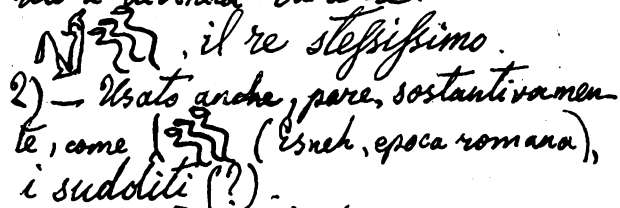 , il re stessissimo.
2) — Usato anche, pare, sostantivamen-
te, come (Esneh, epoca romana),
i sudditi (?).